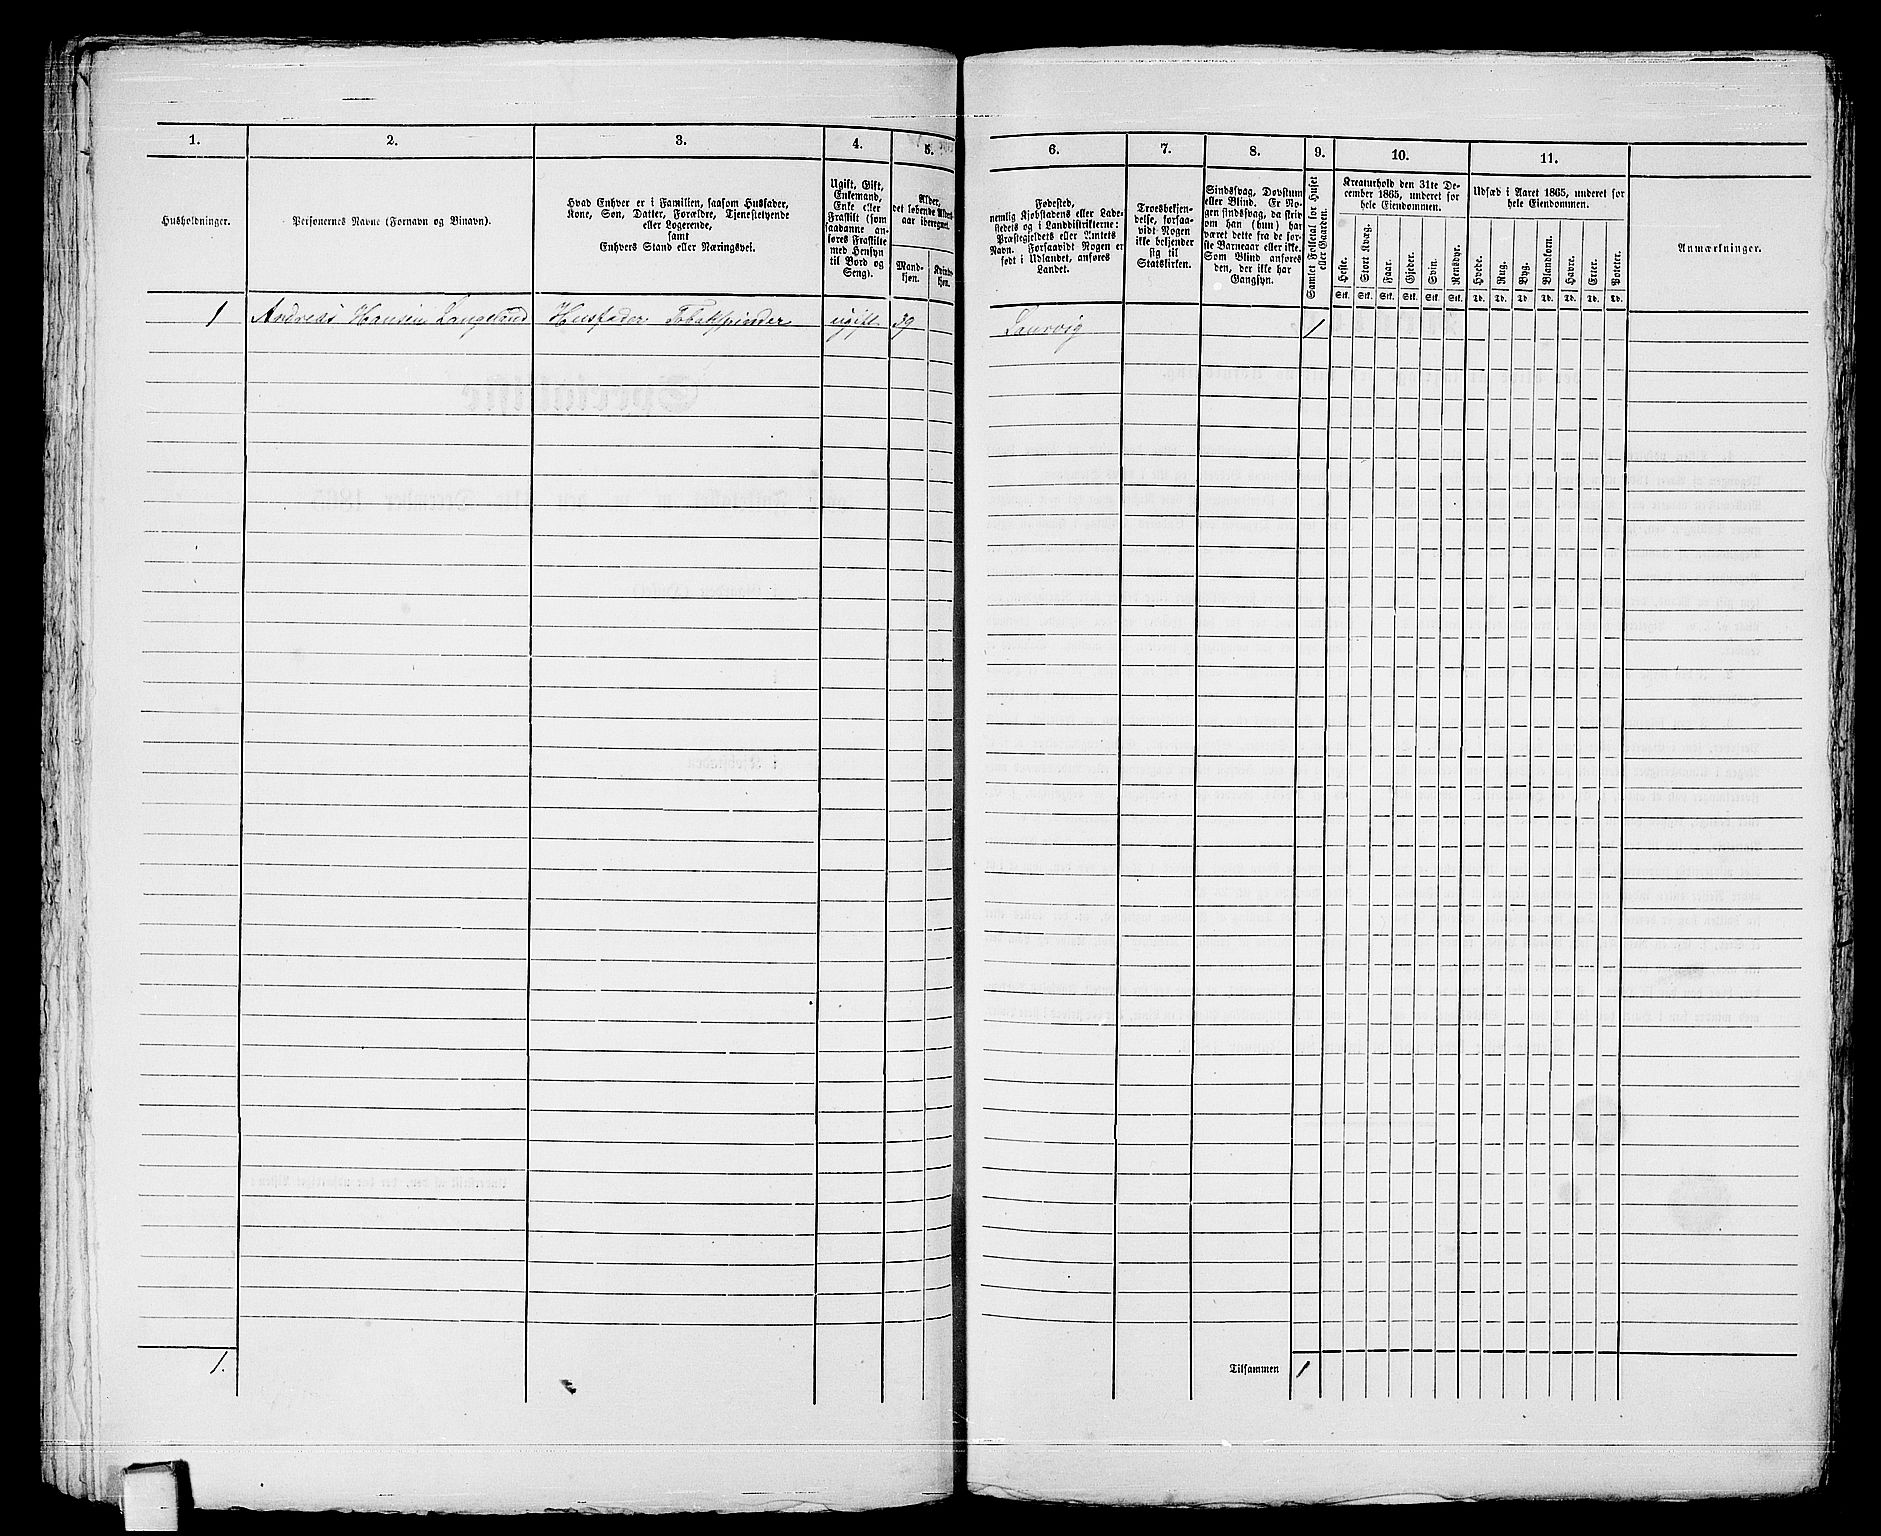 1. 2. 3. 4. 5.
Husholdninger.
Personernes Navne (Fornavn og Binavn).
Hvad Enhver er i Familien, saasom Husfader,
Kone, Søn, Datter, Forældre, Tjenestetyende
eller Logerende,
samt
Enhvers Stand eller Næringsvei.
Ugift, Gift,
Enkemand,
Enke eller
Fraskilt (som
saadanne an-
føres Fraskilte
med Hensyn
til Bord og
Seng).
Alder,
det løbende Alders-
aar iberegnet.
Mand-
kjøn.
Kvinde-
kjøn.
1 Andreas Hansen Langeland Husfader Tobakspinder ugift 39
1.
6. 7. 8. 9. 10. 11.
Fødested,
nemlig Kjøbstadens eller Lade-
stedets og i Landdistrikterne:
Præstegjeldets eller Amtets
Navn. Forsaavidt Nogen er
født i Udlandet, anføres
Landet.
Troesbekjen-
delse, forsaa-
vidt Nogen
ikke bekjender
sig til
Statskirken.
Sindssvag, Døvstum
eller Blind. Er No-
gen sindssvag, da skriv
om han (hun) har
været dette fra de før-
ste Barneaar eller ikke.
Som Blind anføres
den, der ikke har
Gangsyn.
Samlet Folketal for Huset
eller Gaarden.
Kreaturhold den 31te De-
cember 1865, underet for
hele Eiendommen.
Heste. Stort Kvæg. Faar. Gjeder. Svin. Rensdyr.
Stk. Stk. Stk. Stk. Stk. Stk.
Udsæd i Aaret 1865, underet for
hele Eiendommen.
Hvede. Rug. Byg. Blandkorn. Havre. Erter. Poteter.
Td. Td. Td. Td. Td. Td. Td.
Anmærkninger.
Laurvig 1
Tilsammen 1